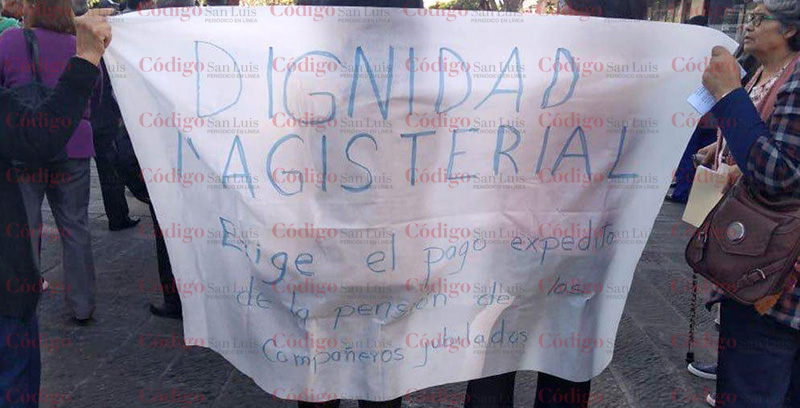 DIGNIDAD
MAGISTERIAL
Exige el pago expedito
de la pensión de los
Compañeros jubilados
Código San Luis
PERIÓDICO EN LÍNEA